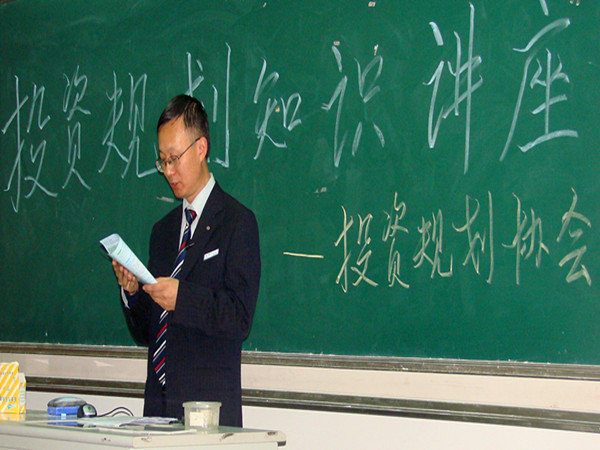 投资规划知识讲座
—投资规划协会